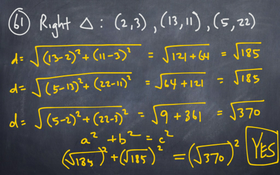 61 Right △ : (2,3) , (13,11) , (5,22)
d = √((13-2)² + (11-3)²) = √(121+64) = √185
d = √((5-13)² + (22-11)²) = √(64+121) = √185
d = √((5-2)² + (22-3)²) = √(9+361) = √370
a² + b² = c²
(√185)² + (√185)² = (√370)² YES